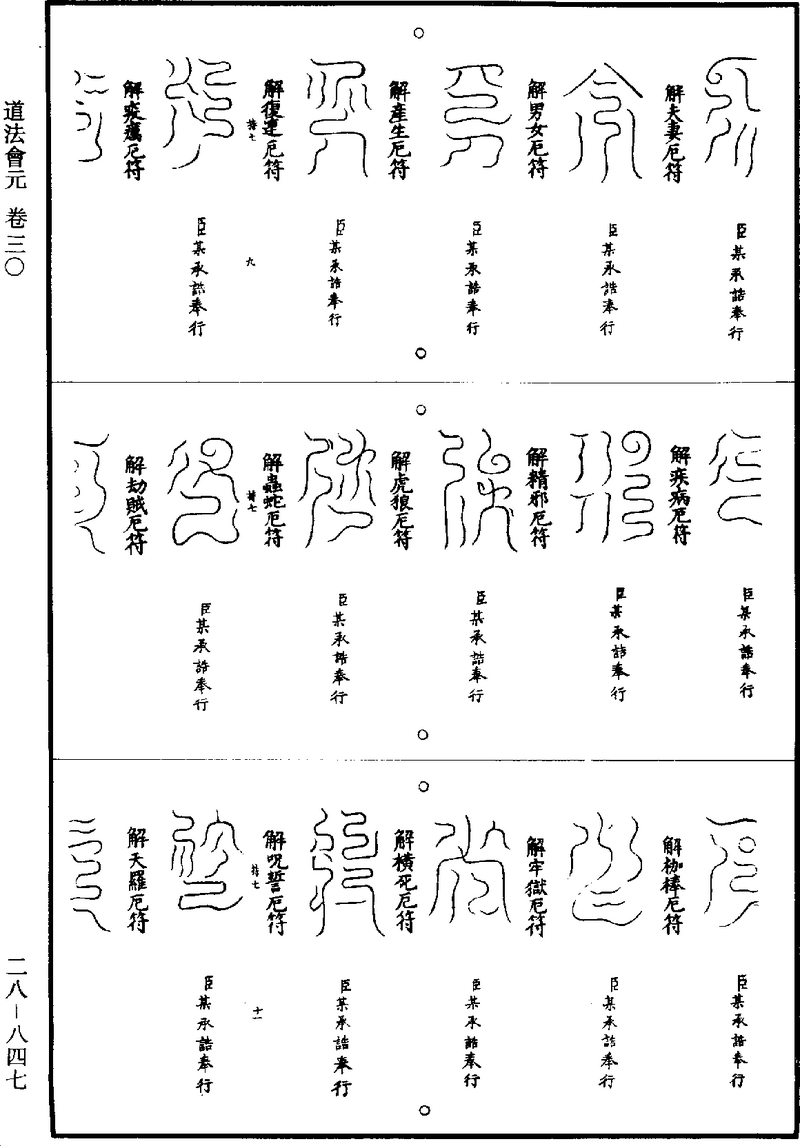 道法會元 卷三〇
二八－八四七
臣某承誥奉行
解夫妻厄符
臣某承誥奉行
解男女厄符
臣某承誥奉行
解產生厄符
臣某承誥奉行
解復連厄符
九
臣某承誥奉行
解疫癘厄符
臣某承誥奉行
解疾病厄符
臣某承誥奉行
解精邪厄符
臣某承誥奉行
解虎狼厄符
臣某承誥奉行
解蟲蛇厄符
臣某承誥奉行
解劫賊厄符
臣某承誥奉行
解枷棒厄符
臣某承誥奉行
解牢獄厄符
臣某承誥奉行
解橫死厄符
臣某承誥奉行
解呪誓厄符
十一
臣某承誥奉行
解天羅厄符